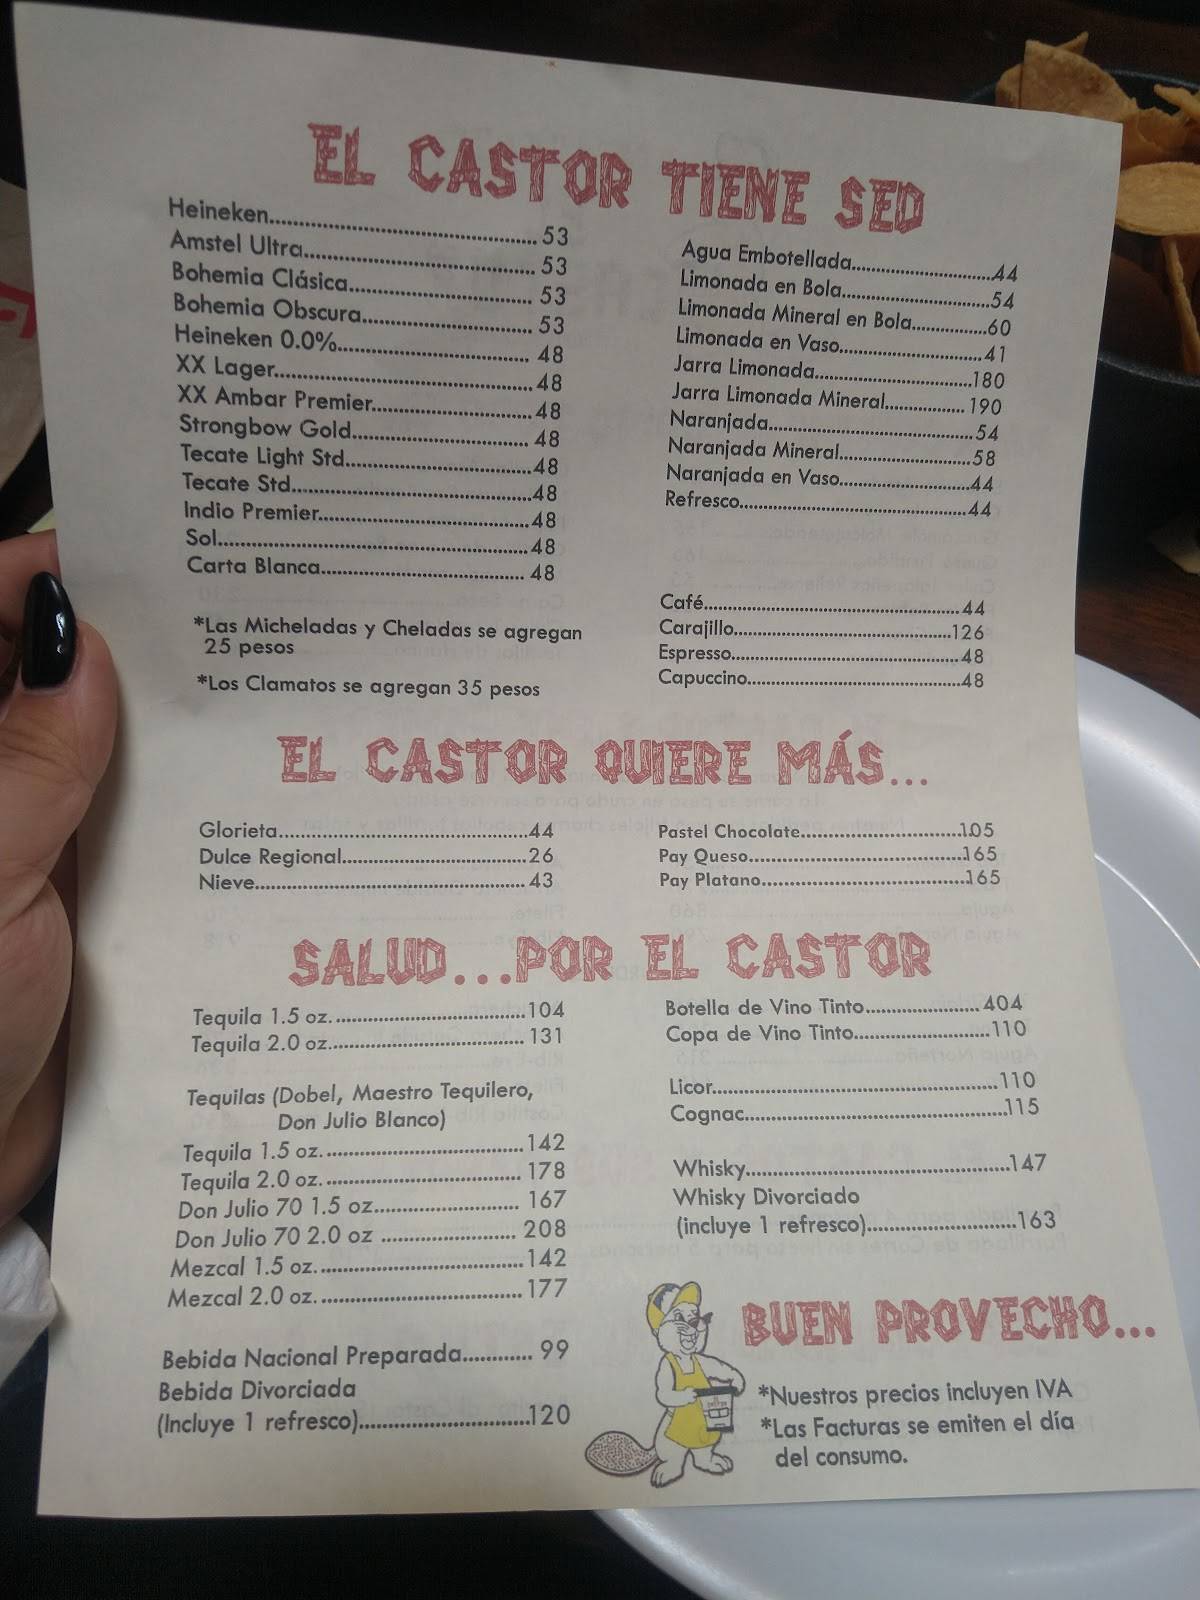 EL CASTOR TIENE SED
Heineken..........53
Amstel Ultra..........53
Bohemia Clásica..........53
Bohemia Obscura..........53
Heineken 0.0%..........48
XX Lager..........48
XX Ambar Premier..........48
Strongbow Gold..........48
Tecate Light Std..........48
Tecate Std..........48
Indio Premier..........48
Sol..........48
Carta Blanca..........48
*Las Micheladas y Cheladas se agregan
25 pesos
*Los Clamatos se agregan 35 pesos
Agua Embotellada..........44
Limonada en Bola..........54
Limonada Mineral en Bola..........60
Limonada en Vaso..........41
Jarra Limonada..........180
Jarra Limonada Mineral..........190
Naranjada..........54
Naranjada Mineral..........58
Naranjada en Vaso..........44
Refresco..........44
Café..........44
Carajillo..........126
Espresso..........48
Capuccino..........48
EL CASTOR QUIERE MÁS...
Glorieta..........44
Dulce Regional..........26
Nieve..........43
Pastel Chocolate..........105
Pay Queso..........165
Pay Platano..........165
SALUD...POR EL CASTOR
Tequila 1.5 oz...........104
Tequila 2.0 oz...........131
Tequilas (Dobel, Maestro Tequilero,
Don Julio Blanco)
Tequila 1.5 oz...........142
Tequila 2.0 oz...........178
Don Julio 70 1.5 oz..........167
Don Julio 70 2.0 oz ..........208
Mezcal 1.5 oz...........142
Mezcal 2.0 oz...........177
Bebida Nacional Preparada..........99
Bebida Divorciada
(Incluye 1 refresco)..........120
Botella de Vino Tinto..........404
Copa de Vino Tinto..........110
Licor..........110
Cognac..........115
Whisky..........147
Whisky Divorciado
(incluye 1 refresco)..........163
BUEN PROVECHO...
*Nuestros precios incluyen IVA
*Las Facturas se emiten el día
del consumo.